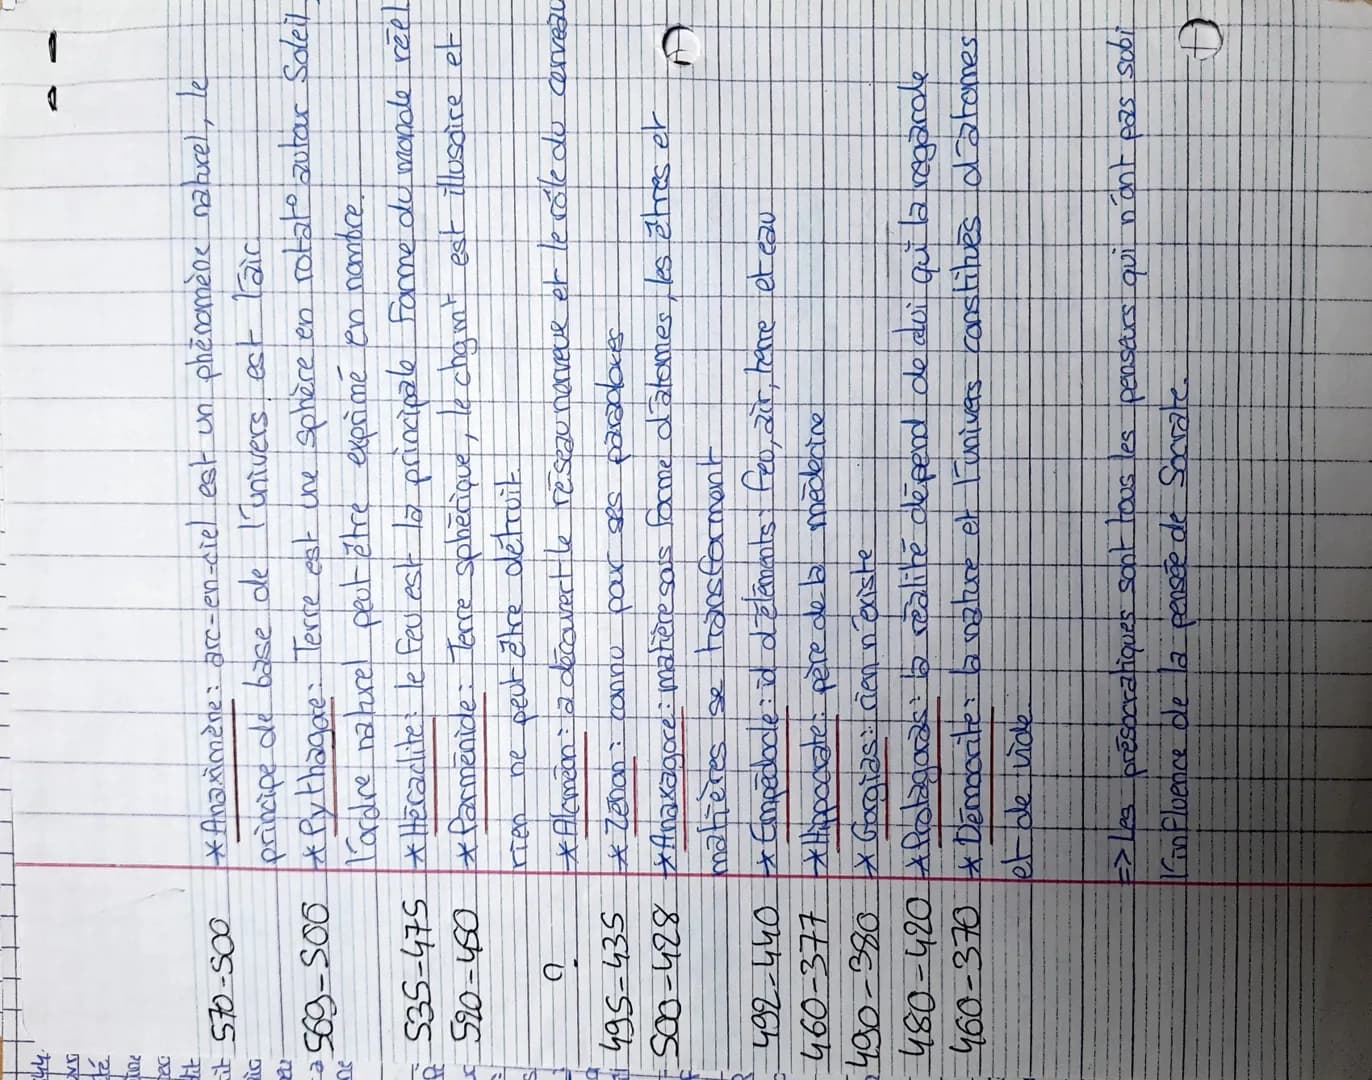 570-500 * Anaximène : arc-en-ciel est un phénomène naturel, le
principe de base de l'univers est l'air
569-500 * Pythagore : Terre est une sphère en rotat° autour Soleil,
l'ordre naturel peut être exprimé en nombre.
535-475 * Héraclite : le feu est la principale forme du monde réel
520-450 * Parménide : Terre sphérique, le chgmt est illusoire et
rien ne peut être détruit.
? * Alcméon : a découvert le réseau nerveux et le rôle du cerveau
495-435 * Zénon : connu pour ses paradoxes
500-428 * Anaxagore : matière sous forme d'atomes, les êtres et
matières se transformant
492-440 * Empédocle : id d'éléments : feu, air, terre et eau
460-377 * Hippocrate : père de la médecine
490-380 * Gorgias : rien n'existe
480-420 * Protagoras : la réalité dépend de celui qui la regarde
460-370 * Démocrite : la nature et l'univers constitués d'atomes
et de vide
=> Les présocratiques sont tous les penseurs qui n'ont pas subi
l'influence de la pensée de Socrate.